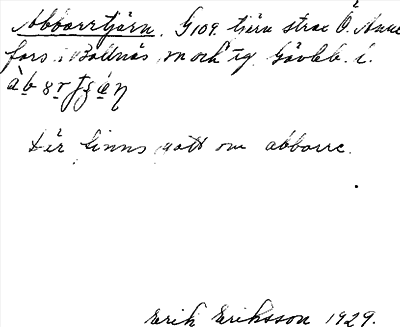 Abborrtjärn. G109. tjärn strax Ö. Anne
fors i Bollnäs sn och tg. Gävleb. l.
Där finns gott om abborre.
Erik Eriksson 1929.